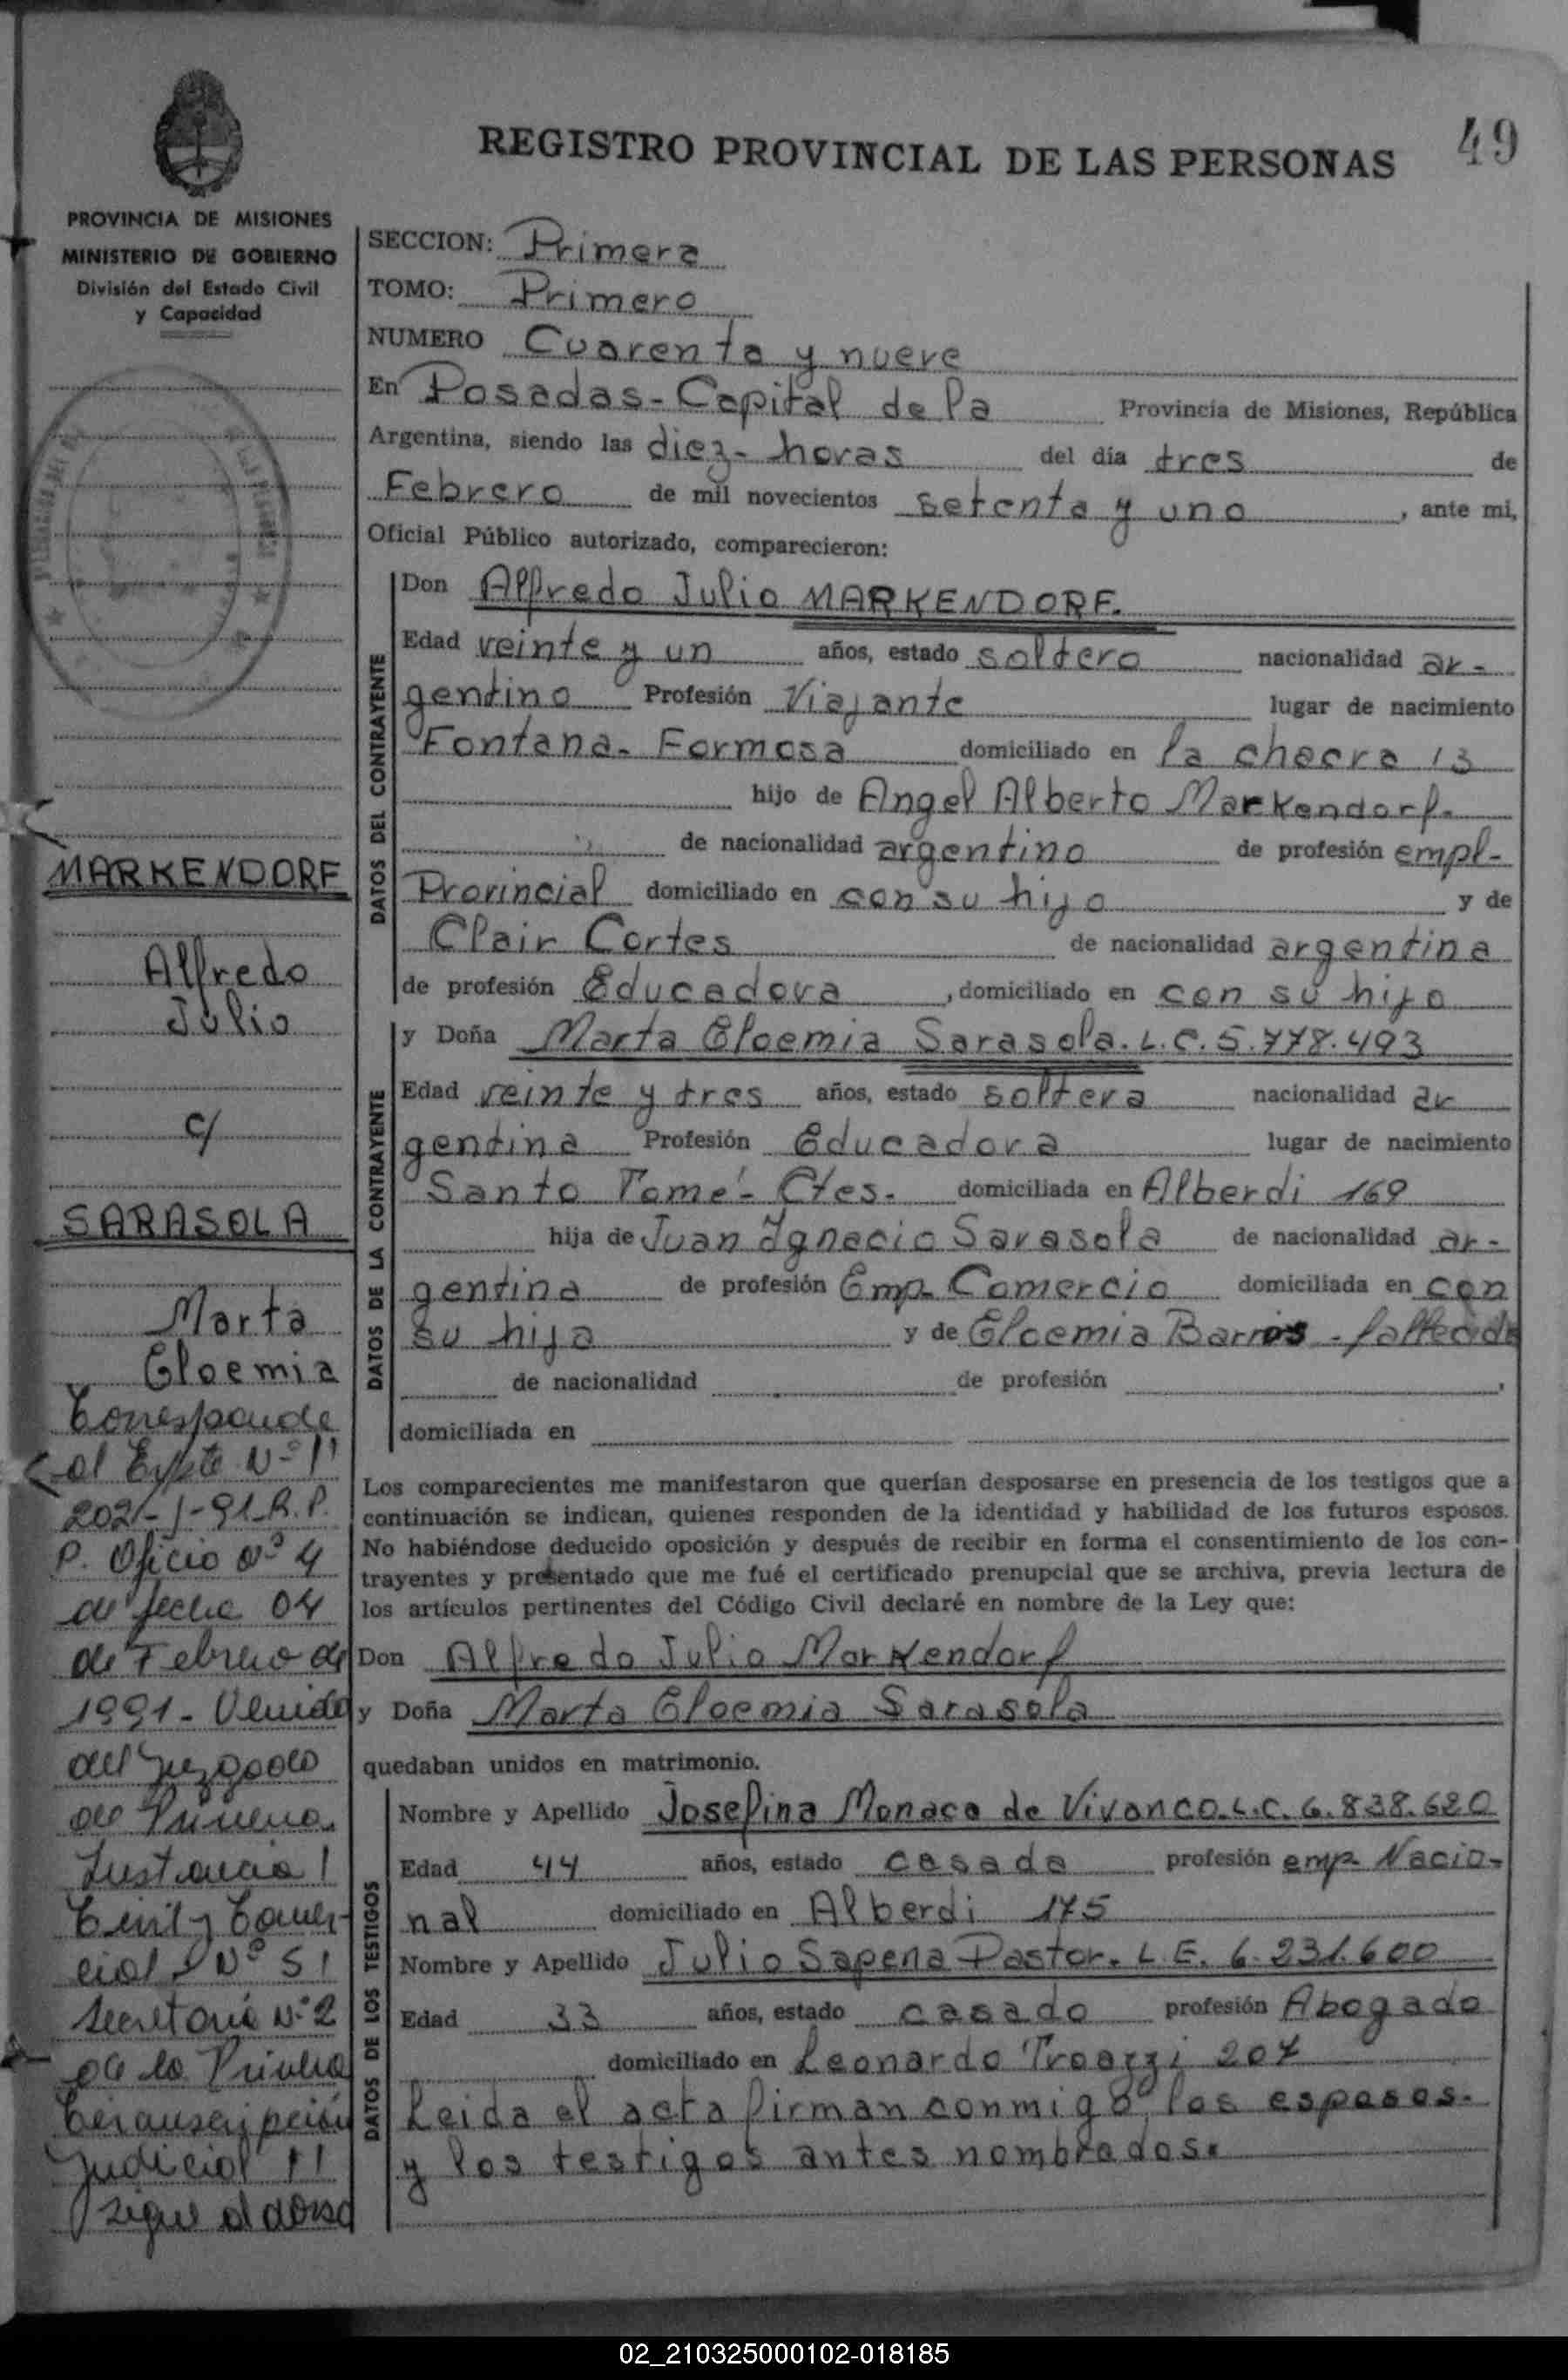 49
REGISTRO PROVINCIAL DE LAS PERSONAS
PROVINCIA DE MISIONES
MINISTERIO DE GOBIERNO
División del Estado Civil
y Capacidad
MARKENDORF
Alfredo
Julio
c/
SARASOLA
Marta
Eloemia
Corresponde
al Expte Nº 11
202/- J-91-R.P.
P. Oficio Nº 4
de fecha 04
de Febrero de
1991 - Venido
del Juzgado
de Primera
Instancia
Civil y Comer-
cial Nº 5
Secretaria Nº 2
de la Primera
Circunscripción
Judicial
sigue al dorso
SECCION: Primera
TOMO: Primero
NUMERO Cuarenta y nueve
En Posadas - Capital de la Provincia de Misiones, República
Argentina, siendo las diez - horas del día tres de
Febrero de mil novecientos setenta y uno, ante mi,
Oficial Público autorizado, comparecieron:
DATOS DEL CONTRAYENTE
Don Alfredo Julio MARKENDORF.
Edad veinte y un años, estado soltero nacionalidad ar-
gentino Profesión Viajante lugar de nacimiento
Fontana - Formosa domiciliado en la chacra 13
hijo de Angel Alberto Markendorf.
de nacionalidad argentino de profesión empl-
Provincial domiciliado en con su hijo y de
Clair Cortes de nacionalidad argentina
de profesión Educadora, domiciliado en con su hijo
DATOS DE LA CONTRAYENTE
y Doña Marta Eloemia Sarasola. L.C. 5.778.493
Edad veinte y tres años, estado soltera nacionalidad ar
gentina Profesión Educadora lugar de nacimiento
Santo Tomé - Ctes. domiciliada en Alberdi 169
hija de Juan Ignacio Sarasola de nacionalidad ar-
gentina de profesión Emp. Comercio domiciliada en con
su hija y de Eloemia Barrios - fallecida
de nacionalidad de profesión ,
domiciliada en
Los comparecientes me manifestaron que querían desposarse en presencia de los testigos que a
continuación se indican, quienes responden de la identidad y habilidad de los futuros esposos.
No habiéndose deducido oposición y después de recibir en forma el consentimiento de los con-
trayentes y presentado que me fué el certificado prenupcial que se archiva, previa lectura de
los artículos pertinentes del Código Civil declaré en nombre de la Ley que:
Don Alfredo Julio Markendorf
y Doña Marta Eloemia Sarasola
quedaban unidos en matrimonio.
DATOS DE LOS TESTIGOS
Nombre y Apellido Josefina Monaca de Vivanco. L.C. 6.838.620
Edad 44 años, estado casada profesión emp. Nacio-
nal domiciliado en Alberdi 175
Nombre y Apellido Julio Sapena Pastor. L.E. 6.231.600
Edad 33 años, estado casado profesión Abogado
domiciliado en Leonardo Troazzi 207
Leida el acta firman conmigo, los esposos.
y los testigos antes nombrados.
02_210325000102-018185